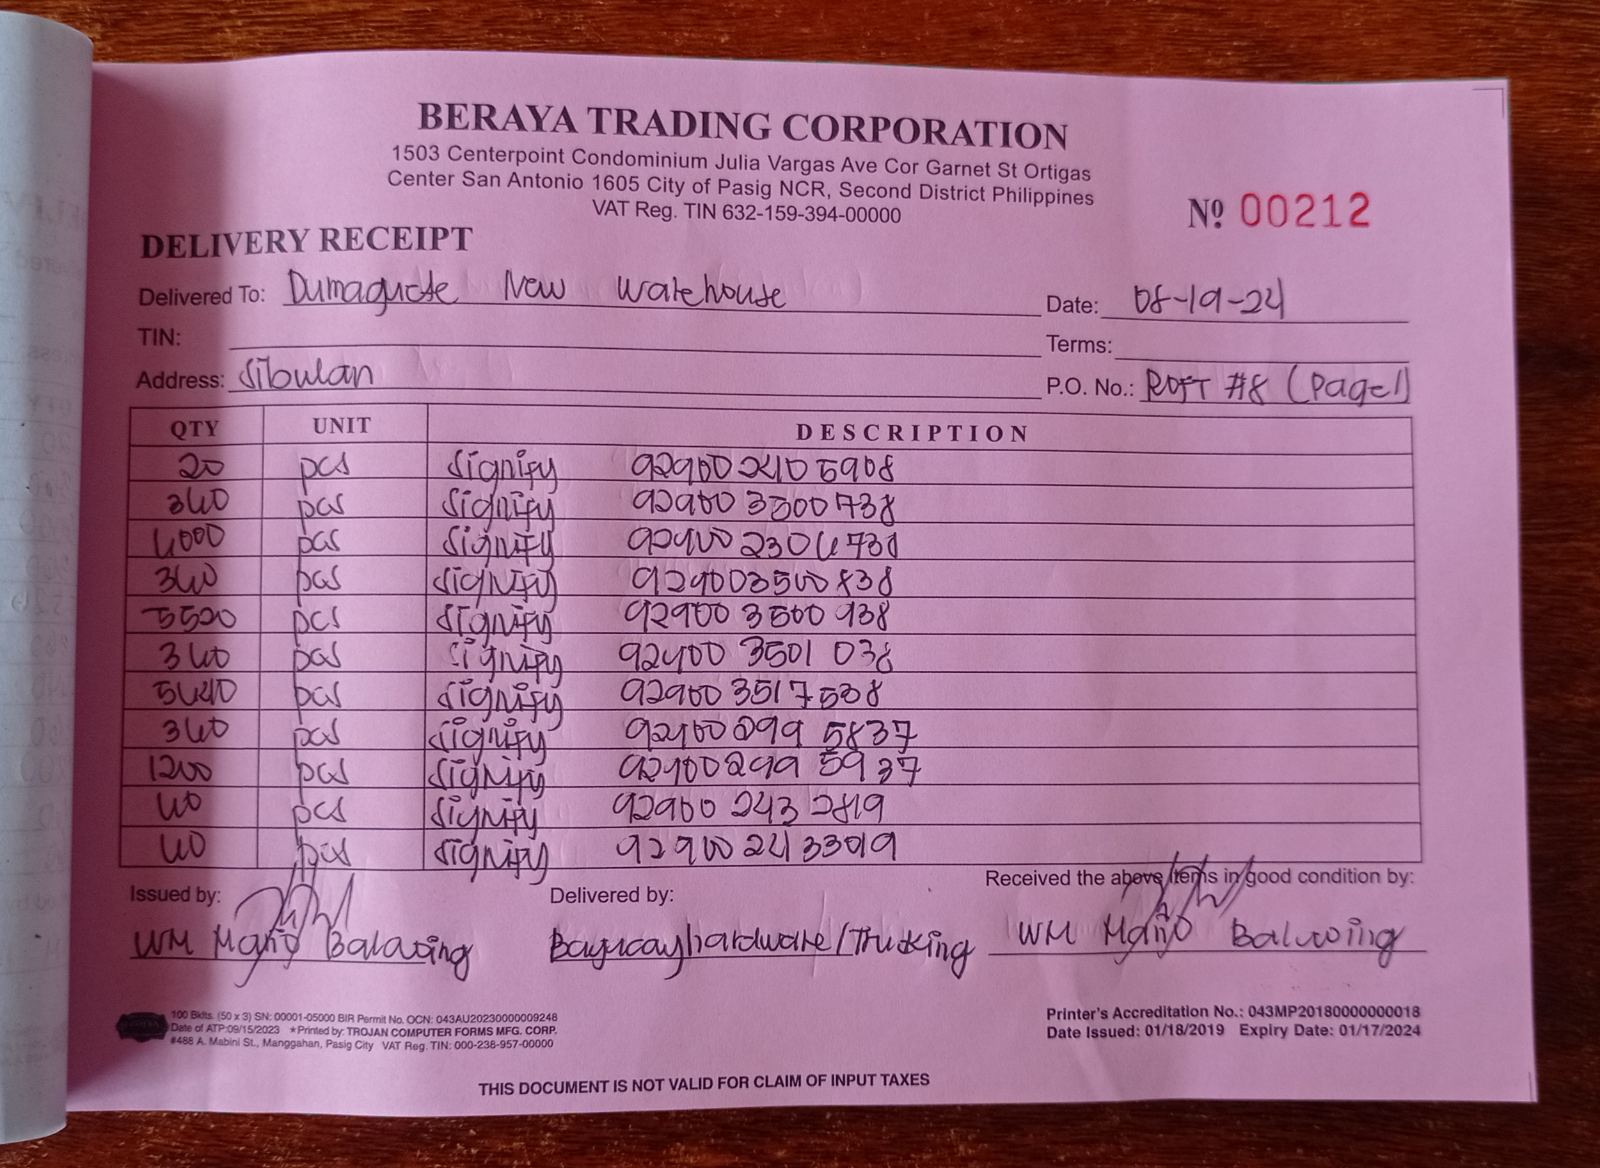 BERAYA TRADING CORPORATION
1503 Centerpoint Condominium Julia Vargas Ave Cor Garnet St Ortigas
Center San Antonio 1605 City of Pasig NCR, Second District Philippines
VAT Reg. TIN 632-159-394-00000
Nº 00212
DELIVERY RECEIPT
Delivered To: Dumaguete New Warehouse Date: 08-19-24
TIN: Terms:
Address: Sibulan P.O. No.: ROFT #8 (Page 1)
QTY UNIT DESCRIPTION
20 pcs Signify 929002105908
340 pcs Signify 929003500738
4000 pcs Signify 929002304738
340 pcs Signify 929003500838
5520 pcs Signify 929003500938
340 pcs Signify 929003501038
pcs Signify 929003517538
340 pcs Signify 929002995837
1200 pcs Signify 929002995937
40 pcs Signify 929002432819
40 pcs Signify 929002433019
Issued by: Delivered by: Received the above items in good condition by:
WM hardware/Trucking WM
100 Bklts. (50 x 3) SN: 00001-05000 BIR Permit No. OCN: 043AU20230000009248
Date of ATP:09/15/2023 *Printed by: TROJAN COMPUTER FORMS MFG. CORP.
#488 A. Mabini St., Manggahan, Pasig City VAT Reg. TIN: 000-238-957-00000
Printer's Accreditation No.: 043MP20180000000018
Date Issued: 01/18/2019 Expiry Date: 01/17/2024
THIS DOCUMENT IS NOT VALID FOR CLAIM OF INPUT TAXES